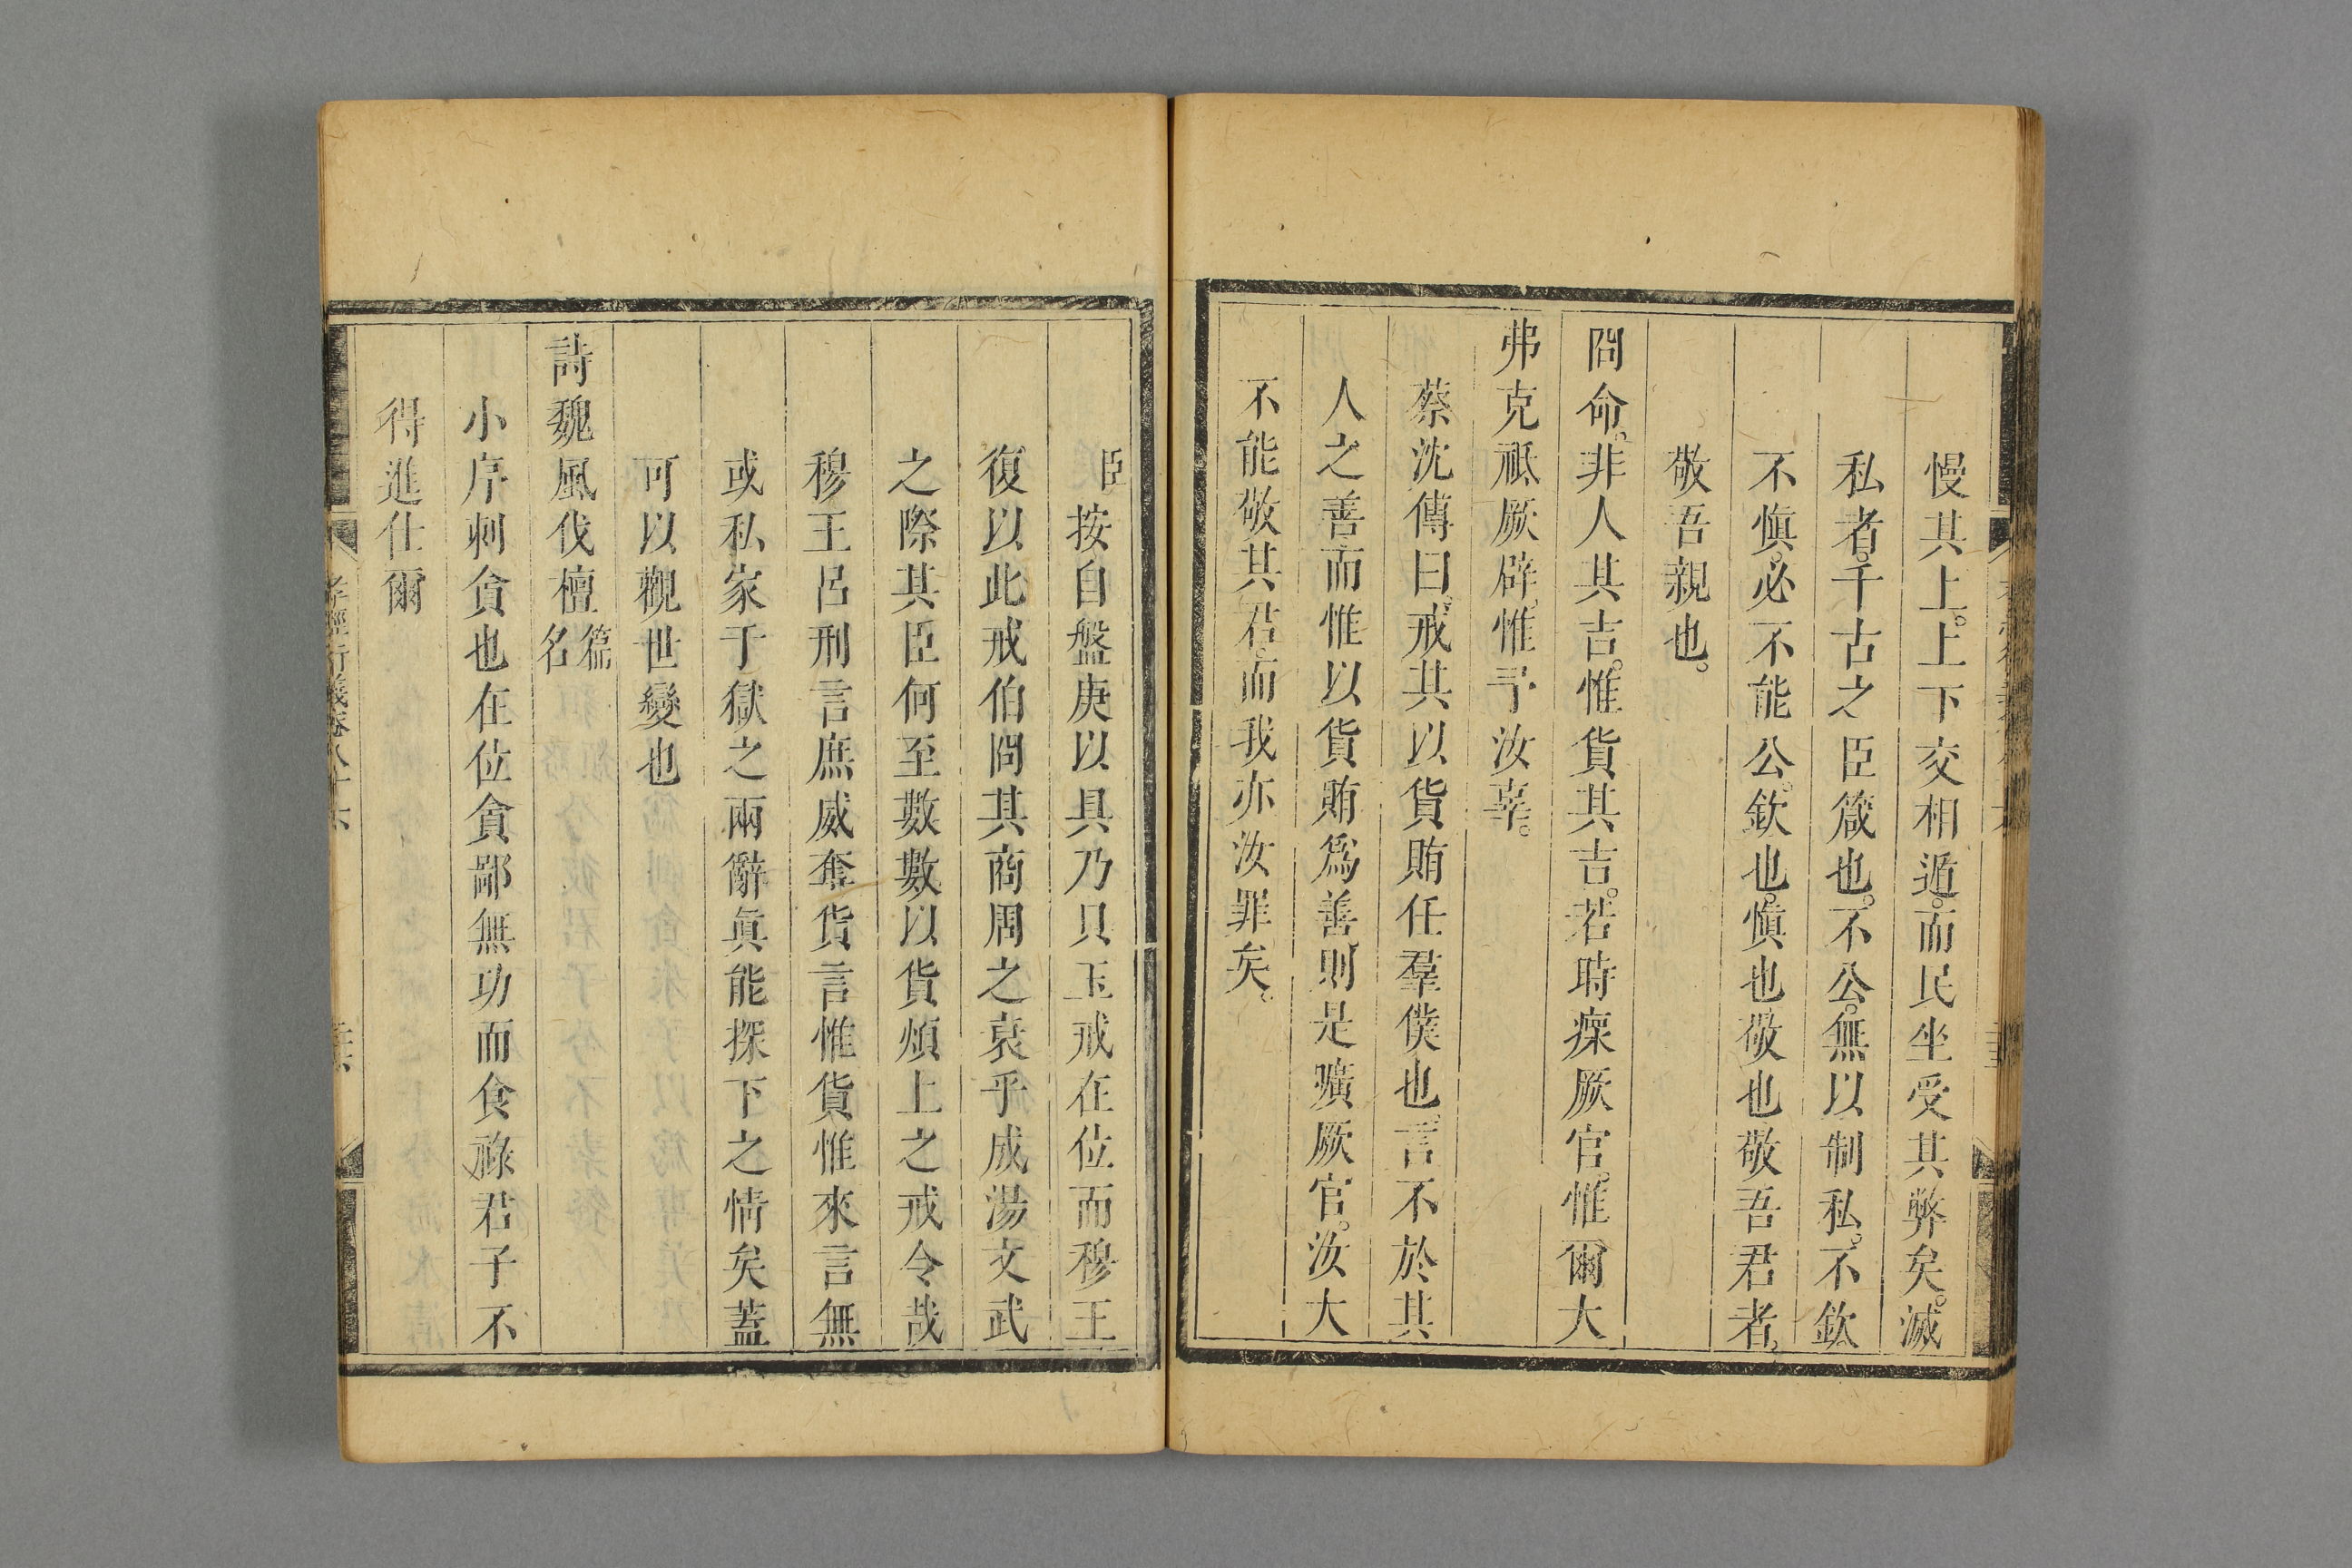 慢其上。上下交相遁。而民坐受其弊矣。滅
私者。千古之臣箴也。不公。無以制私。不欽
不愼。必不能公。欽也。愼也。敬也。敬吾君者。
敬吾親也。
冏命。非人其吉。惟貨其吉。若時瘝厥官。惟爾大
弗克祗厥辟。惟予汝辜。
蔡沈傳曰。戒其以貨賄任羣僕也。言不於其
人之善。而惟以貨賄爲善。則是曠厥官。汝大
不能敬其君。而我亦汝罪矣。
臣按自盤庚以具乃貝玉戒在位而穆王
復以此戒伯冏其商周之衰乎成湯文武
之際其臣何至數數以貨煩上之戒令哉
穆王呂刑言庶威奪貨言惟貨惟來言無
或私家于獄之兩辭眞能探下之情矣蓋
可以觀世變也
詩魏風伐檀篇名
小序刺貪也在位貪鄙無功而食祿君子不
得進仕爾
孝經衍義卷八十六